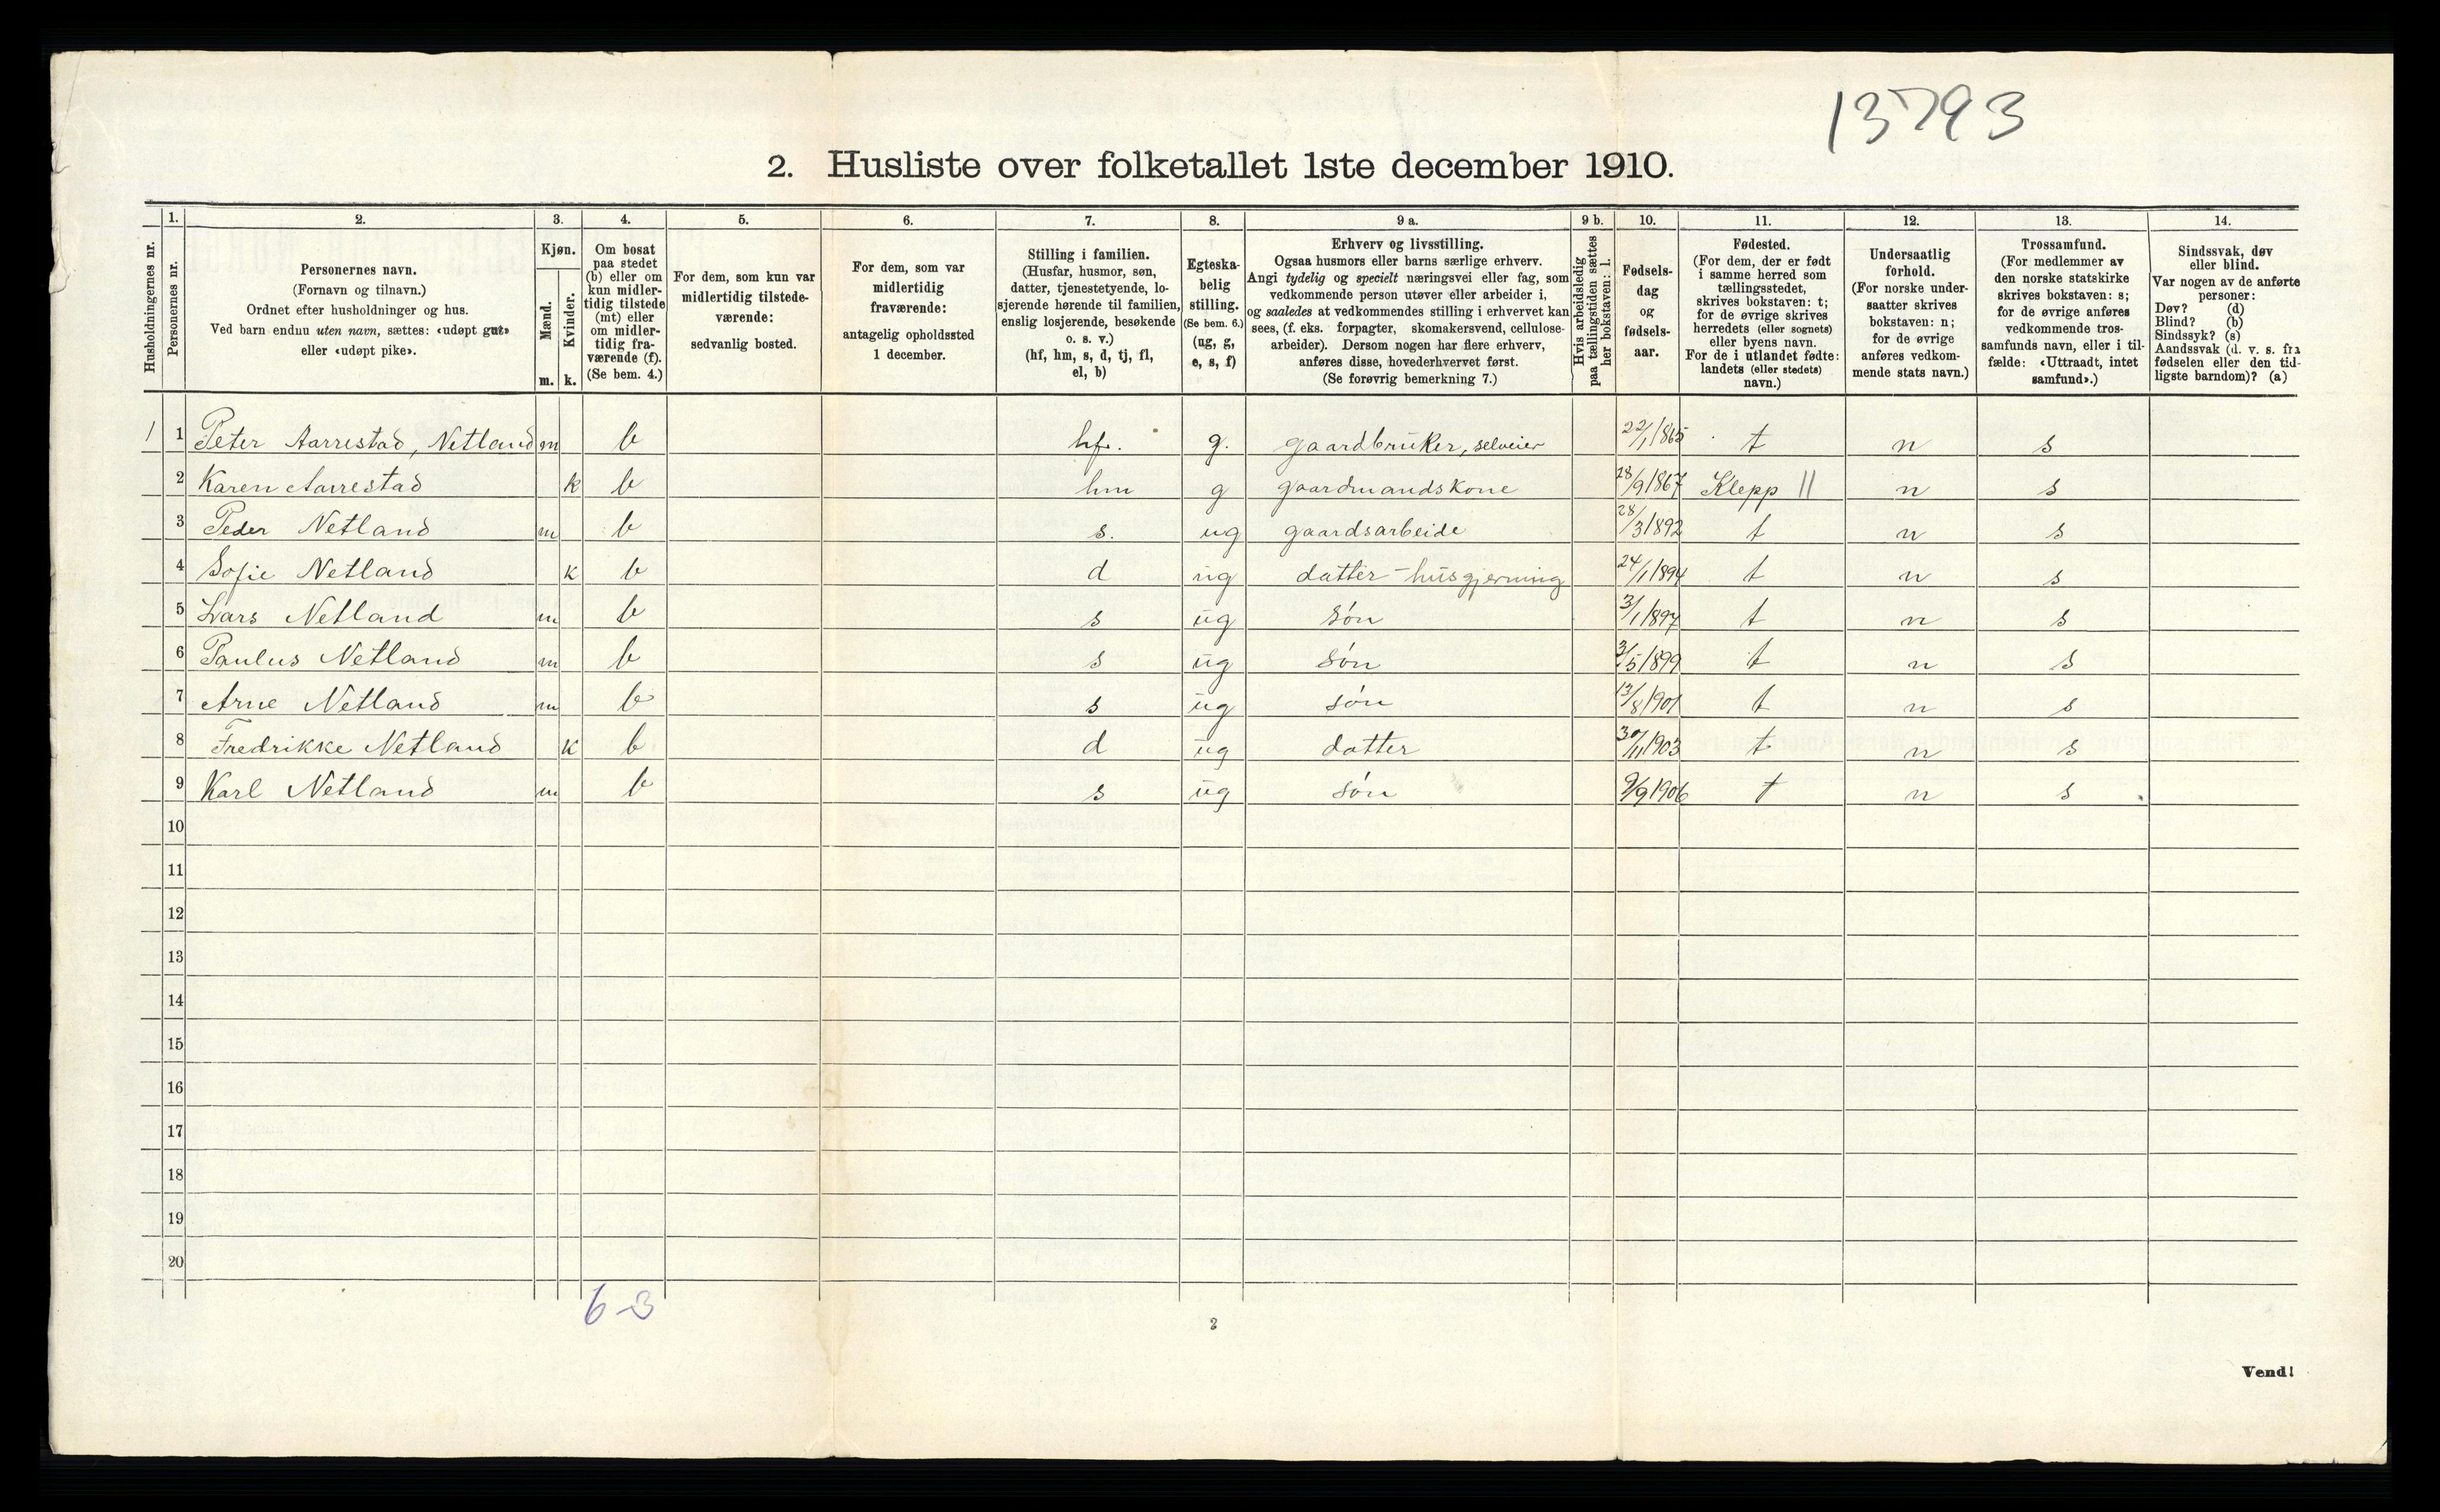 13793
2. Husliste over folketallet 1ste december 1910.
Husholdningernes nr.
1.
Personernes nr.
2.
Personernes navn.
(Fornavn og tilnavn.)
Ordnet efter husholdninger og hus.
Ved barn endnu uten navn, sættes: «udøpt gut»
eller «udøpt pike».
3.
Kjøn.
Mænd.
m.
Kvinder.
k.
4.
Om bosat
paa stedet
(b) eller om
kun midler-
tidig tilstede
(mt) eller
om midler-
tidig fra-
værende (f).
(Se bem. 4.)
5.
For dem, som kun var
midlertidig tilstede-
værende:
sedvanlig bosted.
6.
For dem, som var
midlertidig
fraværende:
antagelig opholdssted
1 december.
7.
Stilling i familien.
(Husfar, husmor, søn,
datter, tjenestetyende, lo-
sjerende hørende til familien,
enslig losjerende, besøkende
o. s. v.)
(hf, hm, s, d, tj, fl,
el, b)
8.
Egteska-
belig
stilling.
(Se bem. 6.)
(ug, g,
e, s, f)
9 a.
Erhverv og livsstilling.
Ogsaa husmors eller barns særlige erhverv.
Angi tydelig og specielt næringsvei eller fag, som
vedkommende person utøver eller arbeider i,
og saaledes at vedkommendes stilling i erhvervet kan
sees, (f. eks. forpagter, skomakersvend, cellulose-
arbeider). Dersom nogen har flere erhverv,
anføres disse, hovederhvervet først.
(Se forøvrig bemerkning 7.)
9 b.
Hvis arbeidsledig
paa tællingstiden sættes
her bokstaven: l.
10.
Fødsels-
dag
og
fødsels-
aar.
11.
Fødested.
(For dem, der er født
i samme herred som
tællingsstedet,
skrives bokstaven: t;
for de øvrige skrives
herredets (eller sognets)
eller byens navn.
For de i utlandet fødte:
landets (eller stedets)
navn.)
12.
Undersaatlig
forhold.
(For norske under-
saatter skrives
bokstaven: n;
for de øvrige
anføres vedkom-
mende stats navn.)
13.
Trossamfund.
(For medlemmer av
den norske statskirke
skrives bokstaven: s;
for de øvrige anføres
vedkommende tros-
samfunds navn, eller i til-
fælde: «Uttraadt, intet
samfund».)
14.
Sindssvak, døv
eller blind.
Var nogen av de anførte
personer:
Døv? (d)
Blind? (b)
Sindssyk? (s)
Aandssvak (d. v. s. fra
fødselen eller den tid-
ligste barndom)? (a)
1 1 Peter Aarrestad, Netland m b hf. g. gaardbruker, selveier 22/1 1865 t n s
2 Karen Aarrestad k b hm g gaardmandskone 28/9 1867 Klepp || n s
3 Peder Netland m b s. ug gaardsarbeide 28/3 1892 t n s
4 Sofie Netland k b d ug datter - husgjerning 24/1 1894 t n s
5 Lars Netland m b s ug søn 3/1 1897 t n s
6 Paulus Netland m b s ug søn 3/5 1899 t n s
7 Arne Netland m b s ug søn 13/8 1901 t n s
8 Fredrikke Netland k b d ug datter 30/11 1903 t n s
9 Karl Netland m b s ug søn 9/9 1906 t n s
10
11
12
13
14
15
16
17
18
19
20
6-3
2
Vend!